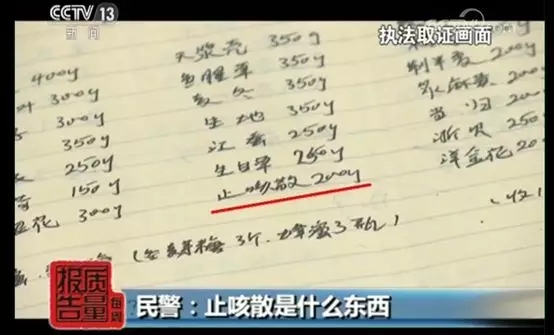 CCTV 13
新闻
执法取证画面
400g
300g
300g
350g
250g
150g
花 300g
天浆壳 350g
鱼腥草 350g
款冬 350g
生地 350g
江蚕 250g
生甘草 250g
止咳散 200g
制半夏 200g
当归 200g
浙贝 250
洋金花 20
3个
3瓶）
质量
报告
每周
民警：止咳散是什么东西